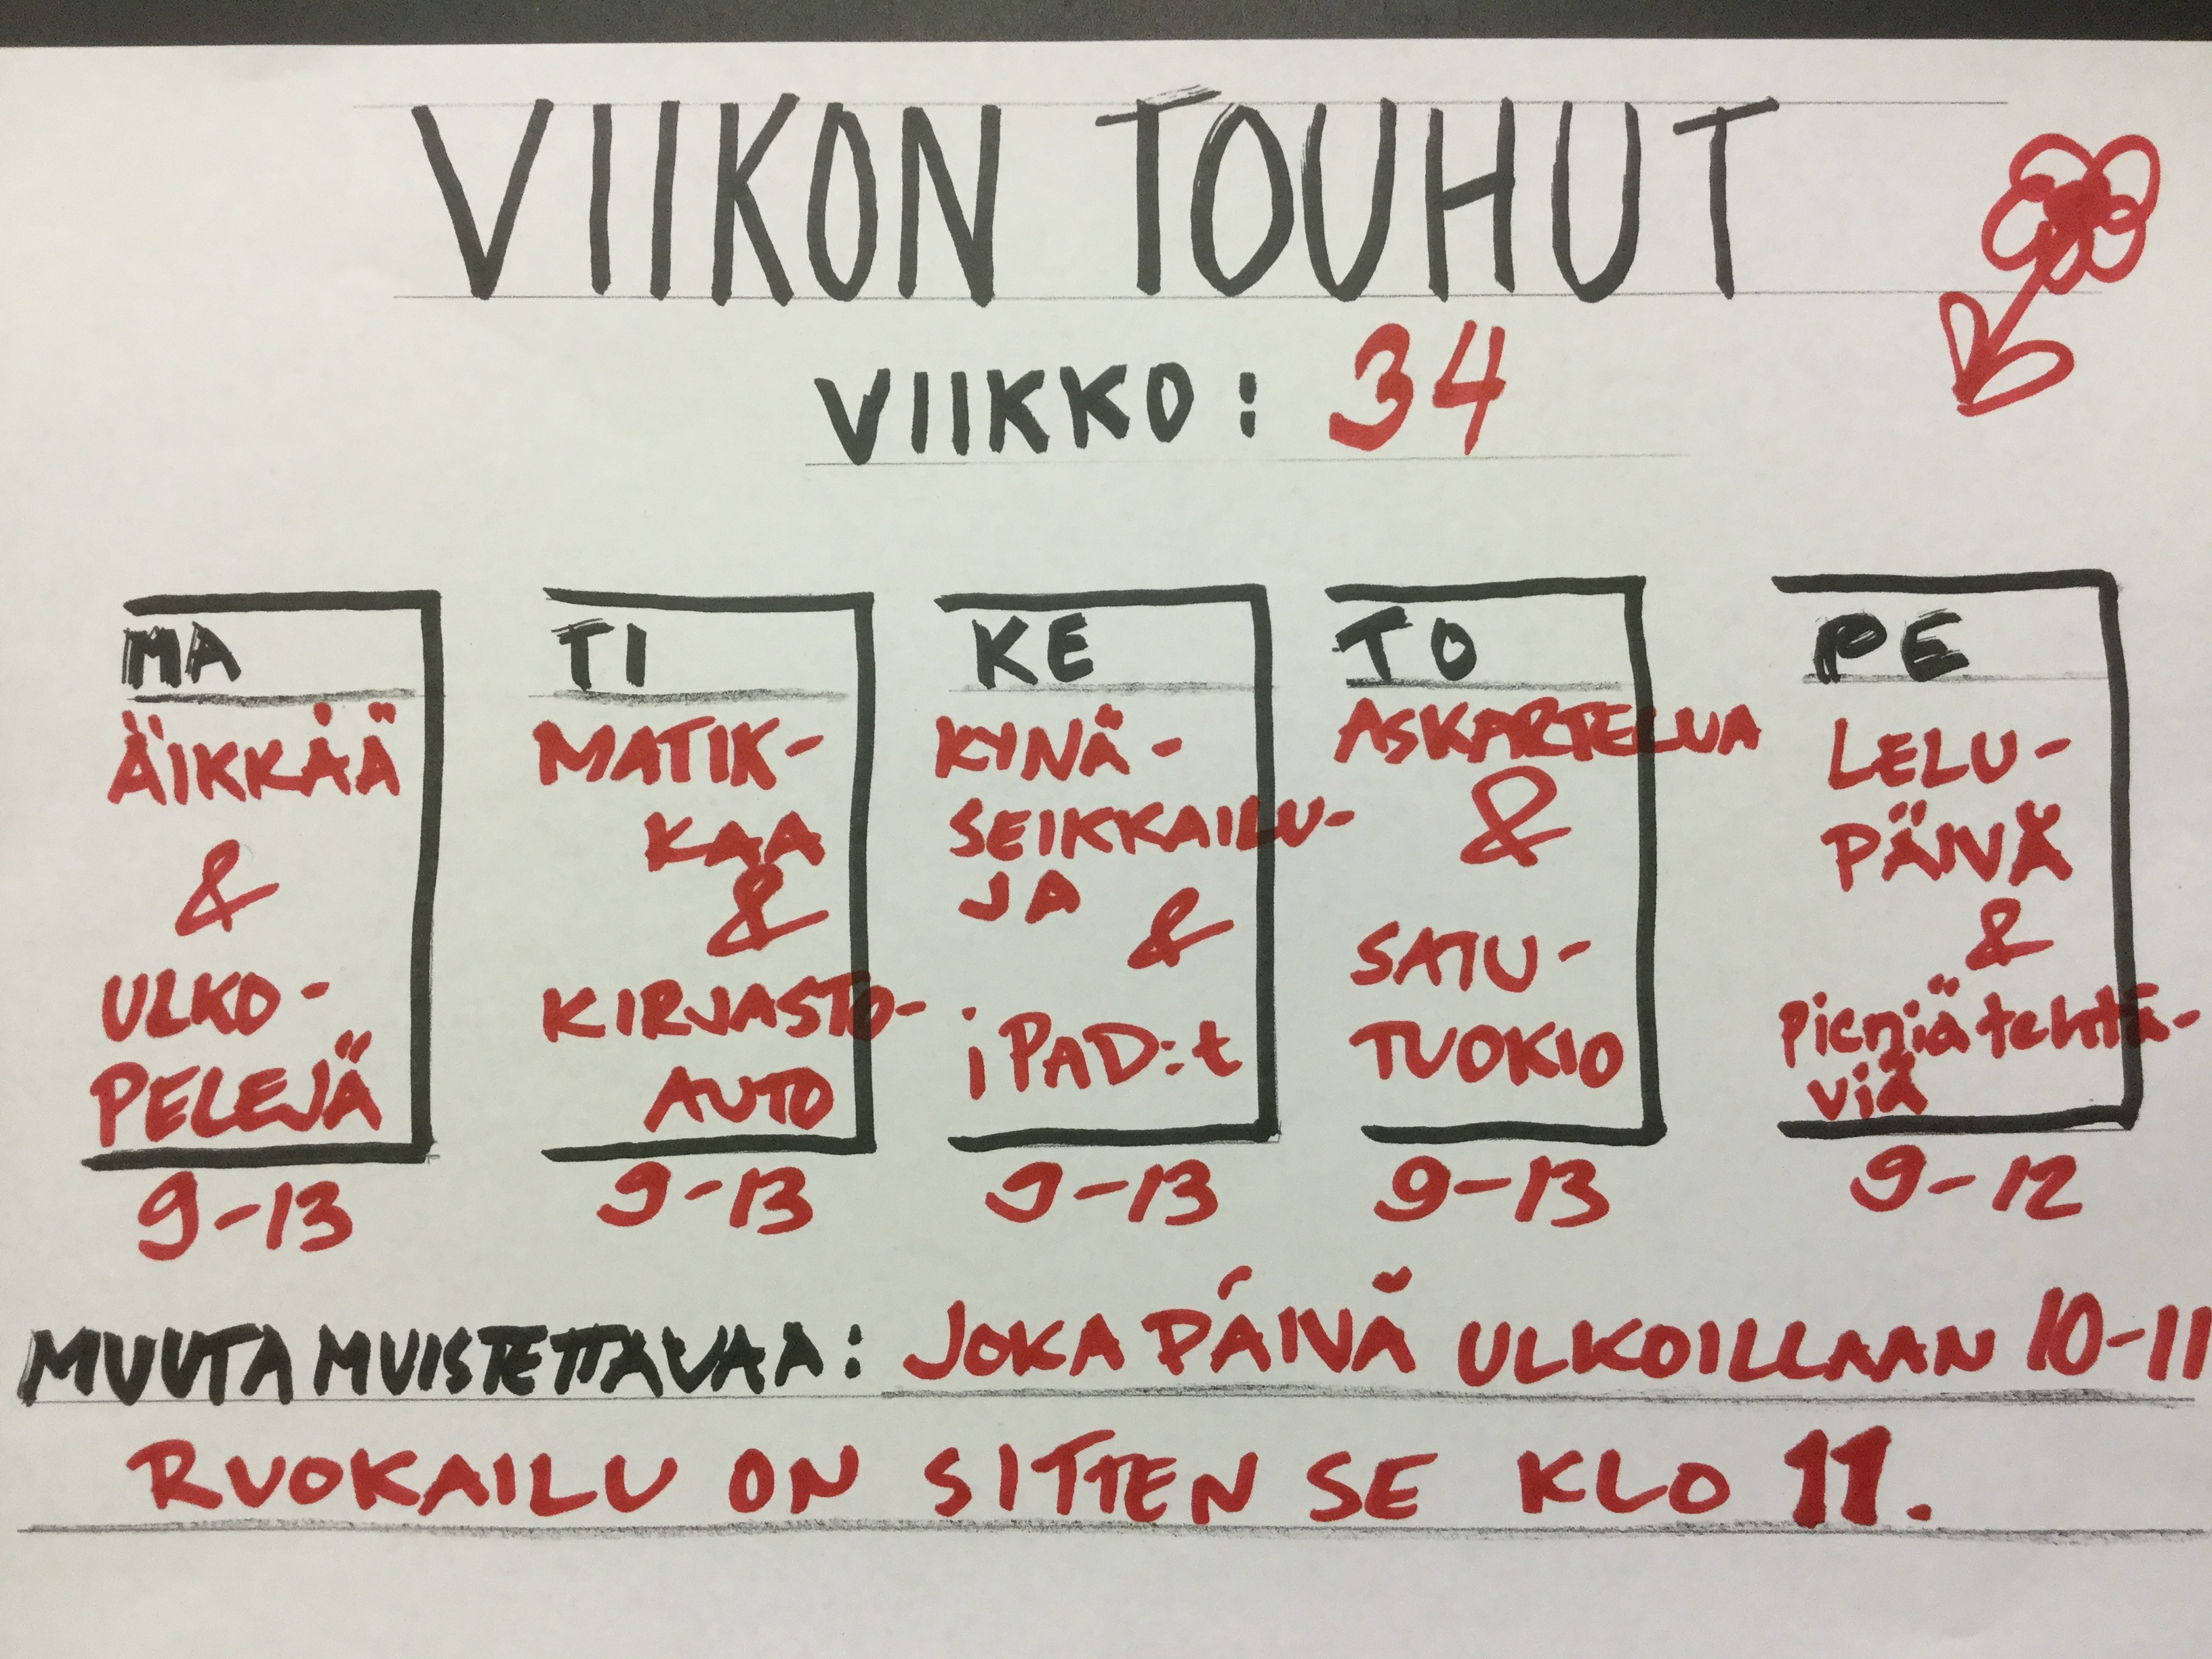 VIIKON TOUHUT
VIIKKO: 34
MA
ÄIKKÄÄ
&
ULKO-
PELEJÄ
9-13
TI
MATIK-
KAA
&
KIRJASTO-
AUTO
9-13
KE
KYNÄ-
SEIKKAILU-
JA &
iPAD:t
9-13
TO
ASKARTELUA
&
SATU-
TUOKIO
9-13
PE
LELU-
PÄIVÄ
&
Pieniä tehtä-
viä
9-12
MUUTA MUISTETTAVAA: JOKA PÄIVÄ ULKOILLAAN 10-11
RUOKAILU ON SITTEN SE KLO 11.